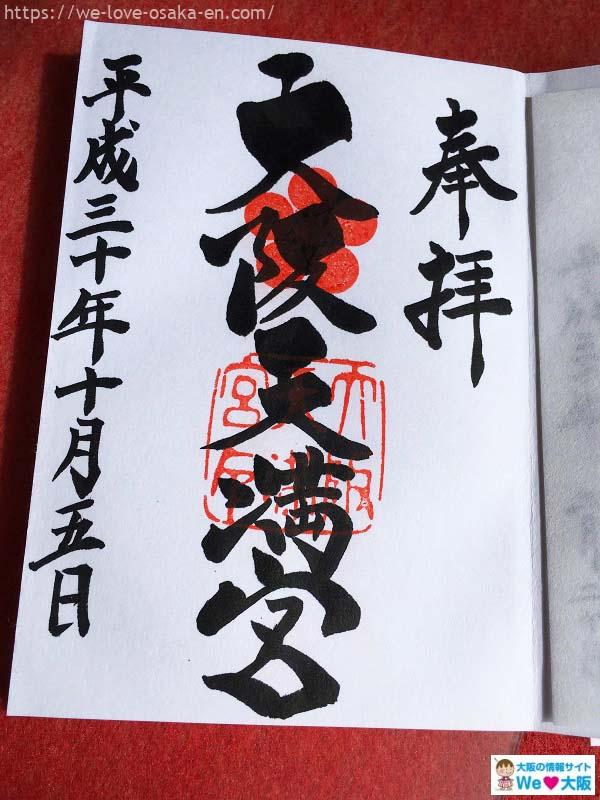 https://we-love-osaka-en.com/
奉拝
大阪天満宮
平成三十年十月五日
大阪の情報サイト
We♥大阪